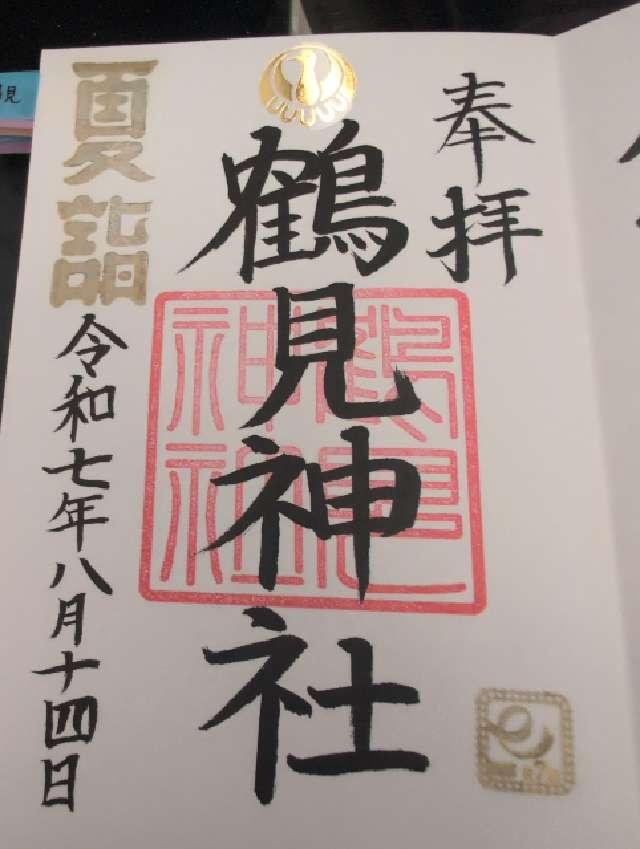 奉拝
鶴見神社
鶴見
神社
夏詣
令和七年八月十四日
見